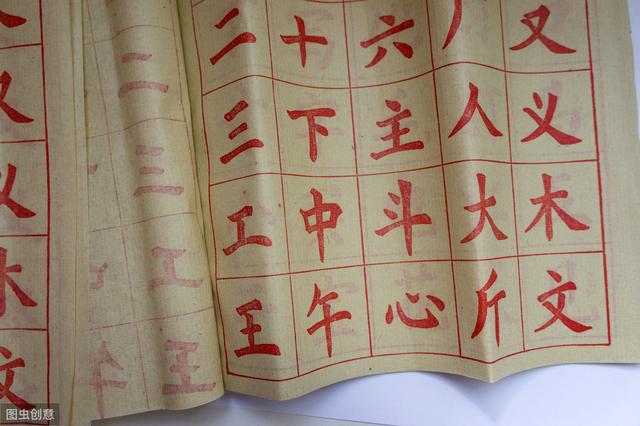 又义木文
二三工王
二三工王
十下中午
六主斗心
人大斤
又义木文
图虫创意